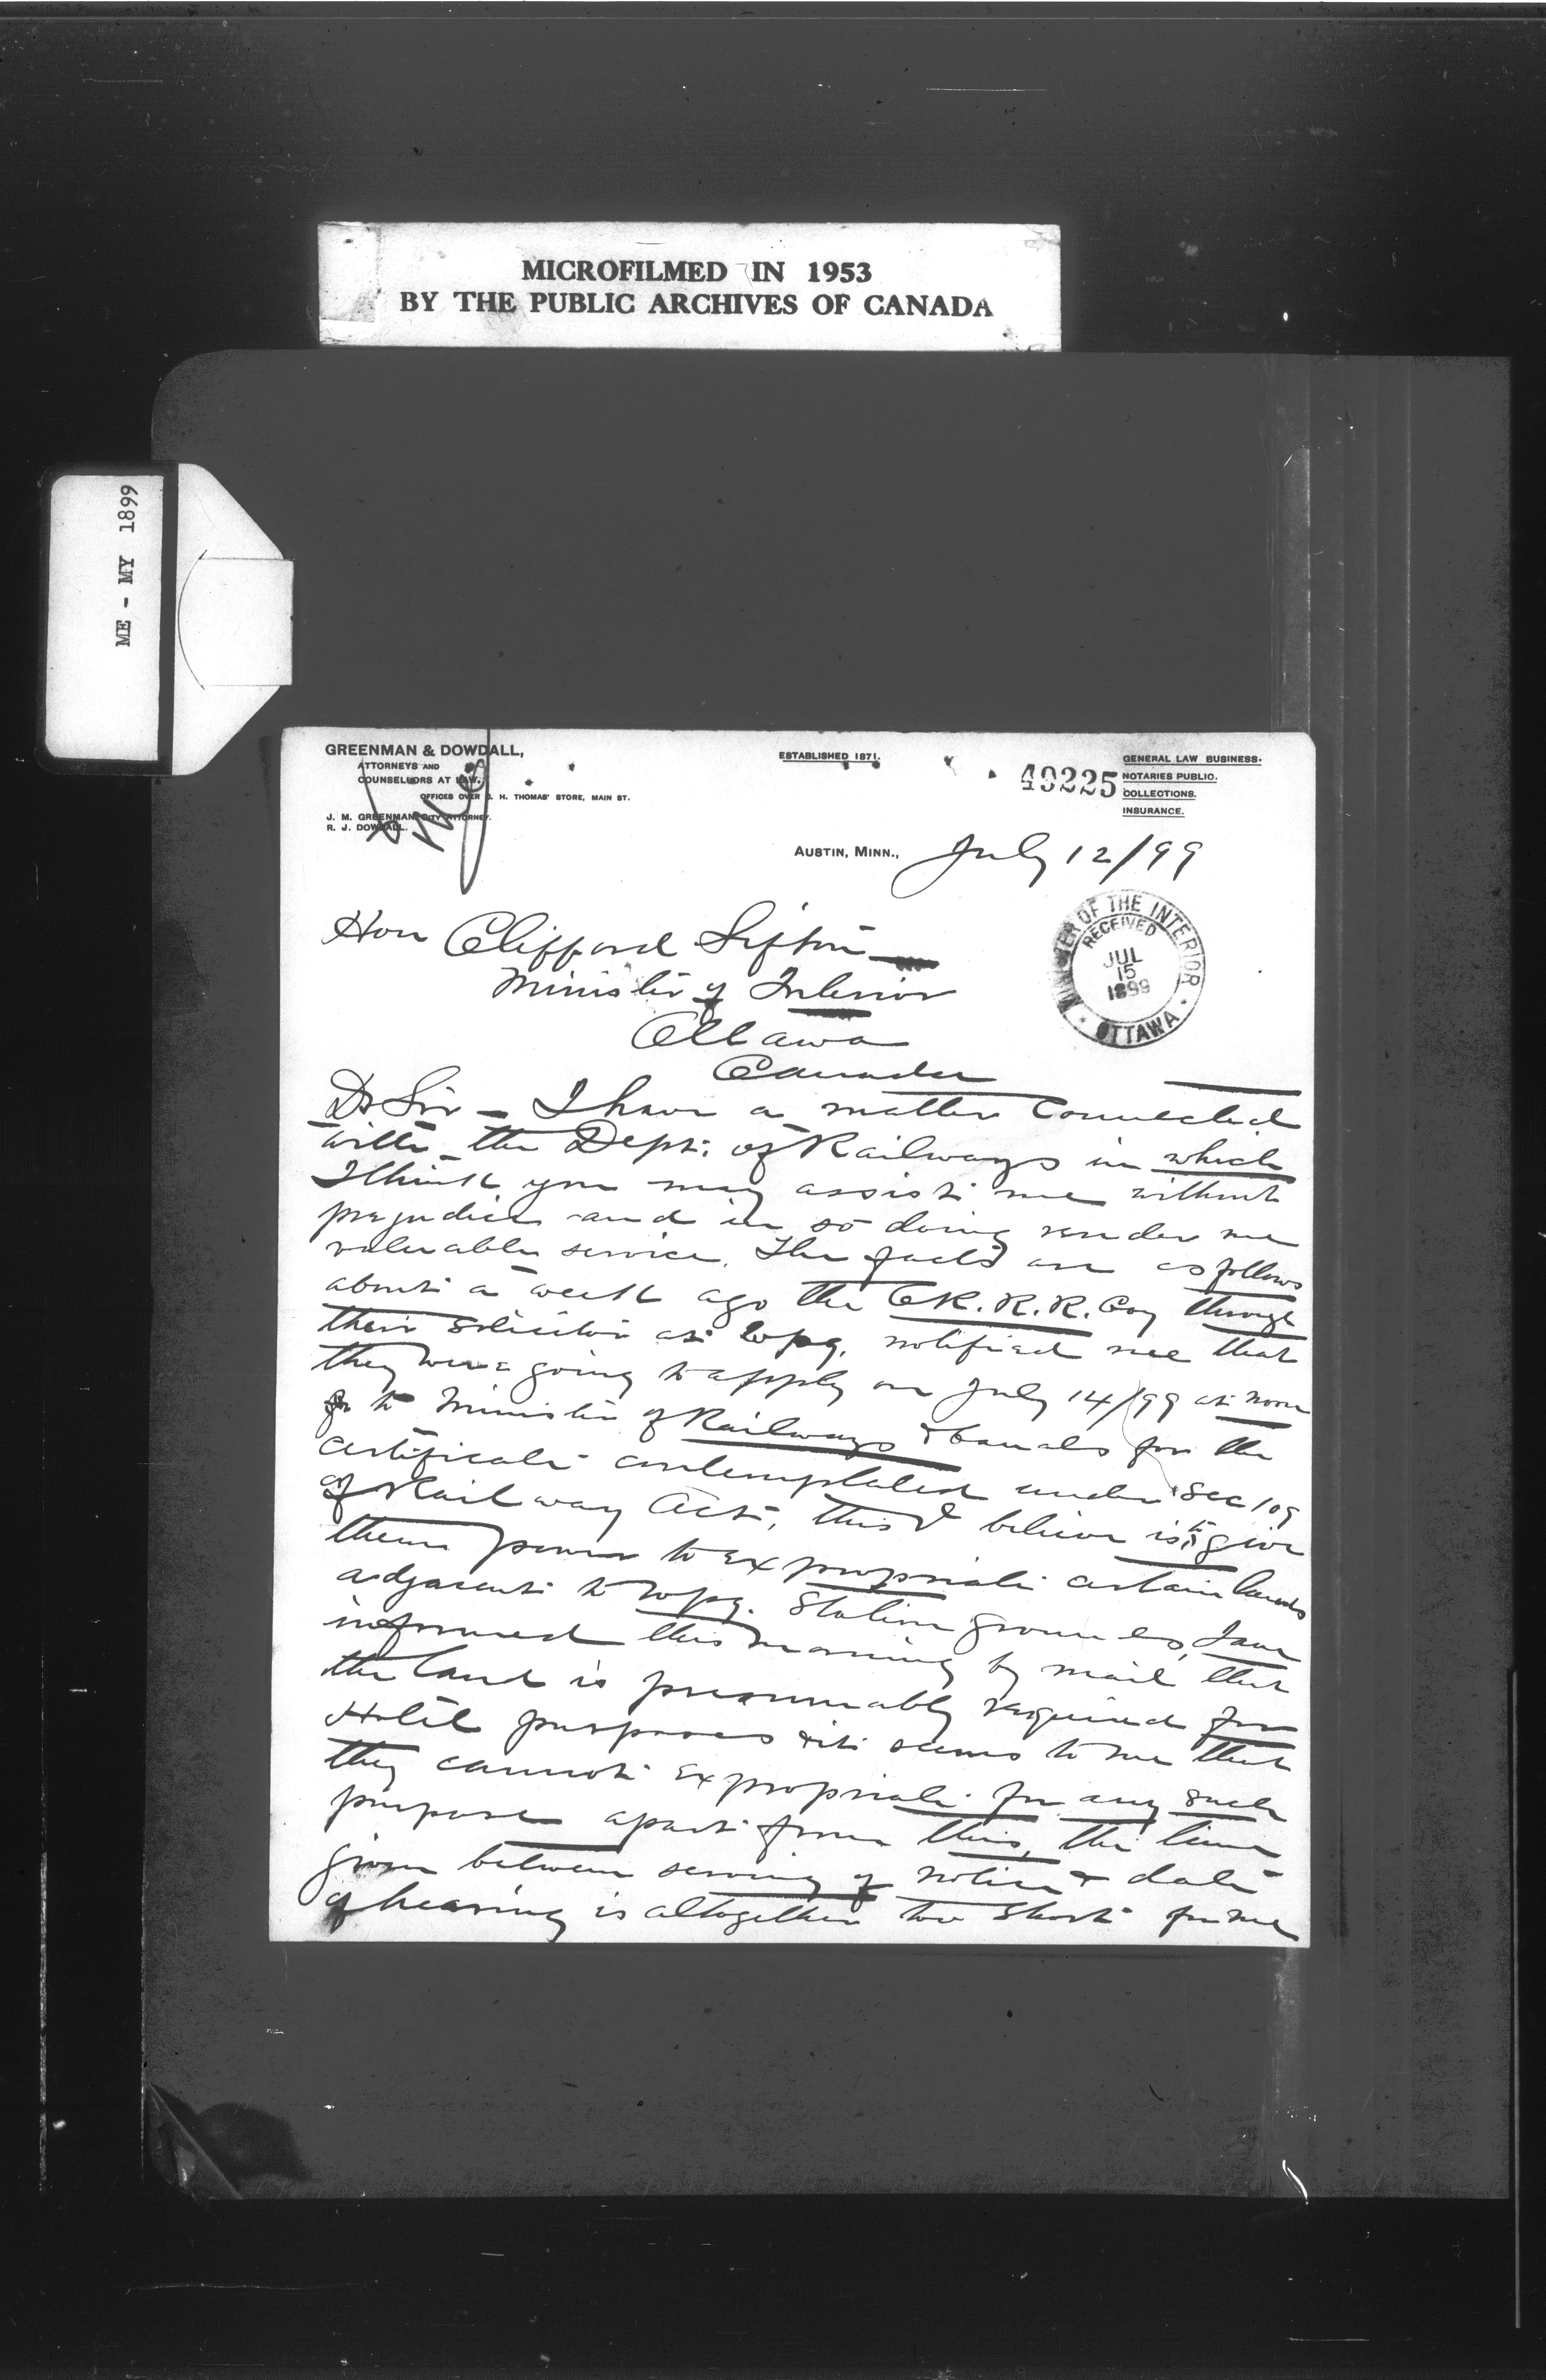 MICROFILMED IN 1953
BY THE PUBLIC ARCHIVES OF CANADA
ME - MY 1899
GREENMAN & DOWDALL,
ATTORNEYS AND
COUNSELLORS AT LAW.
OFFICES OVER H. THOMAS' STORE, MAIN ST.
J. M. GREENMAN, CITY ATTORNEY.
R. J. DOWDALL.
ESTABLISHED 1871.
49225
GENERAL LAW BUSINESS.
NOTARIES PUBLIC.
COLLECTIONS.
INSURANCE.
AUSTIN, MINN., July 12/99
MINISTER OF THE INTERIOR
RECEIVED
JUL
15
1899
OTTAWA
Hon Clifford Sifton
Minister of Interior
Ottawa
Canada
Dr Sir - I have a matter connected
with the Dept. of Railways in which
I think you may assist me without
prejudice and in so doing render me
valuable service. The facts are as follows
about a week ago the C.R.R.R. Coy through
their solicitor at Wpg. notified me that
they were going to apply on July 14/99 at noon
to Minister of Railways & Canals for the
certificate contemplated under Sec 109
of Railway Act, this I believe is to give
them power to expropriate certain lands
adjacent to Wpg. Station grounds, I am
informed this morning by mail that
the land is presumably required for
Hotel purposes & it seems to me that
they cannot expropriate for any such
purpose apart from this, the time
given between serving of notice & date
of hearing is altogether too short for me